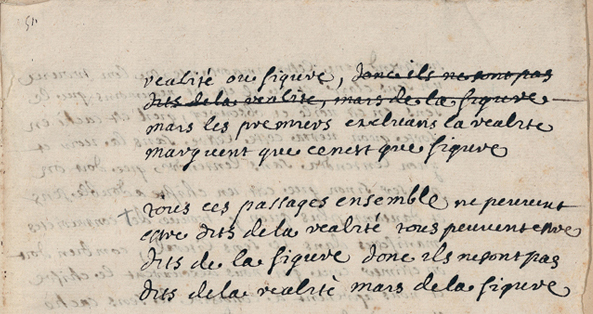 51
realité ou figure, donc ils ne sont pas
dits de la realité, mais de la figure
mais les premiers excluans la realité
marquent que ce nest que figure
+ Tous ces passages ensemble ne peuvent
estre dits de la realité tous peuvent estre
dits de la figure donc ils ne sont pas
dits de la realité mais de la figure